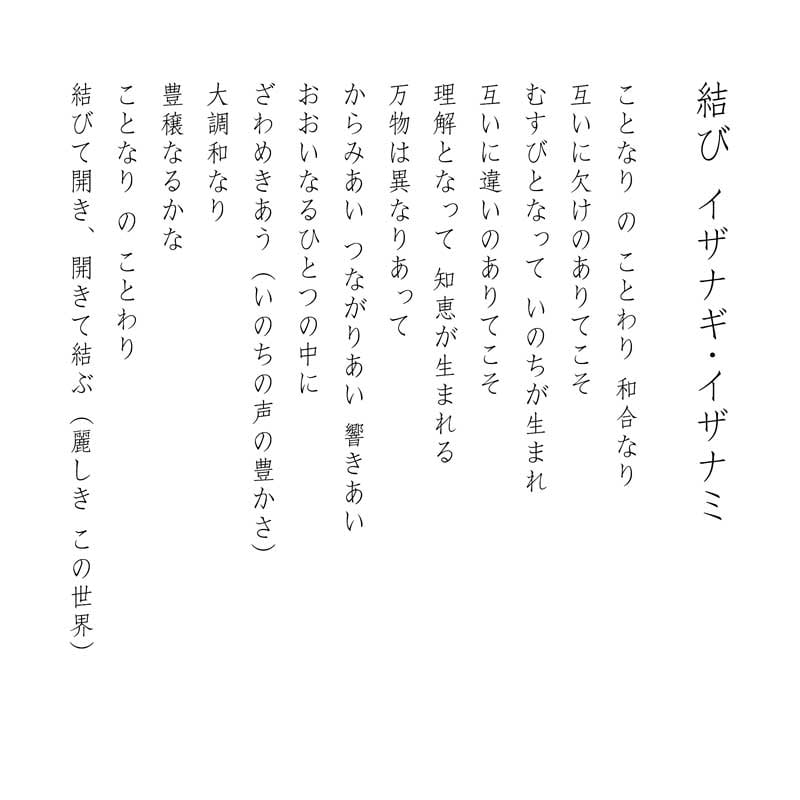 結び イザナギ・イザナミ
ことなり の ことわり 和合なり
互いに欠けのありてこそ
むすびとなって いのちが生まれ
互いに違いのありてこそ
理解となって 知恵が生まれる
万物は異なりあって
からみあい つながりあい 響きあい
おおいなるひとつの中に
ざわめきあう（いのちの声の豊かさ）
大調和なり
豊穣なるかな
ことなり の ことわり
結びて開き、開きて結ぶ（麗しき この世界）